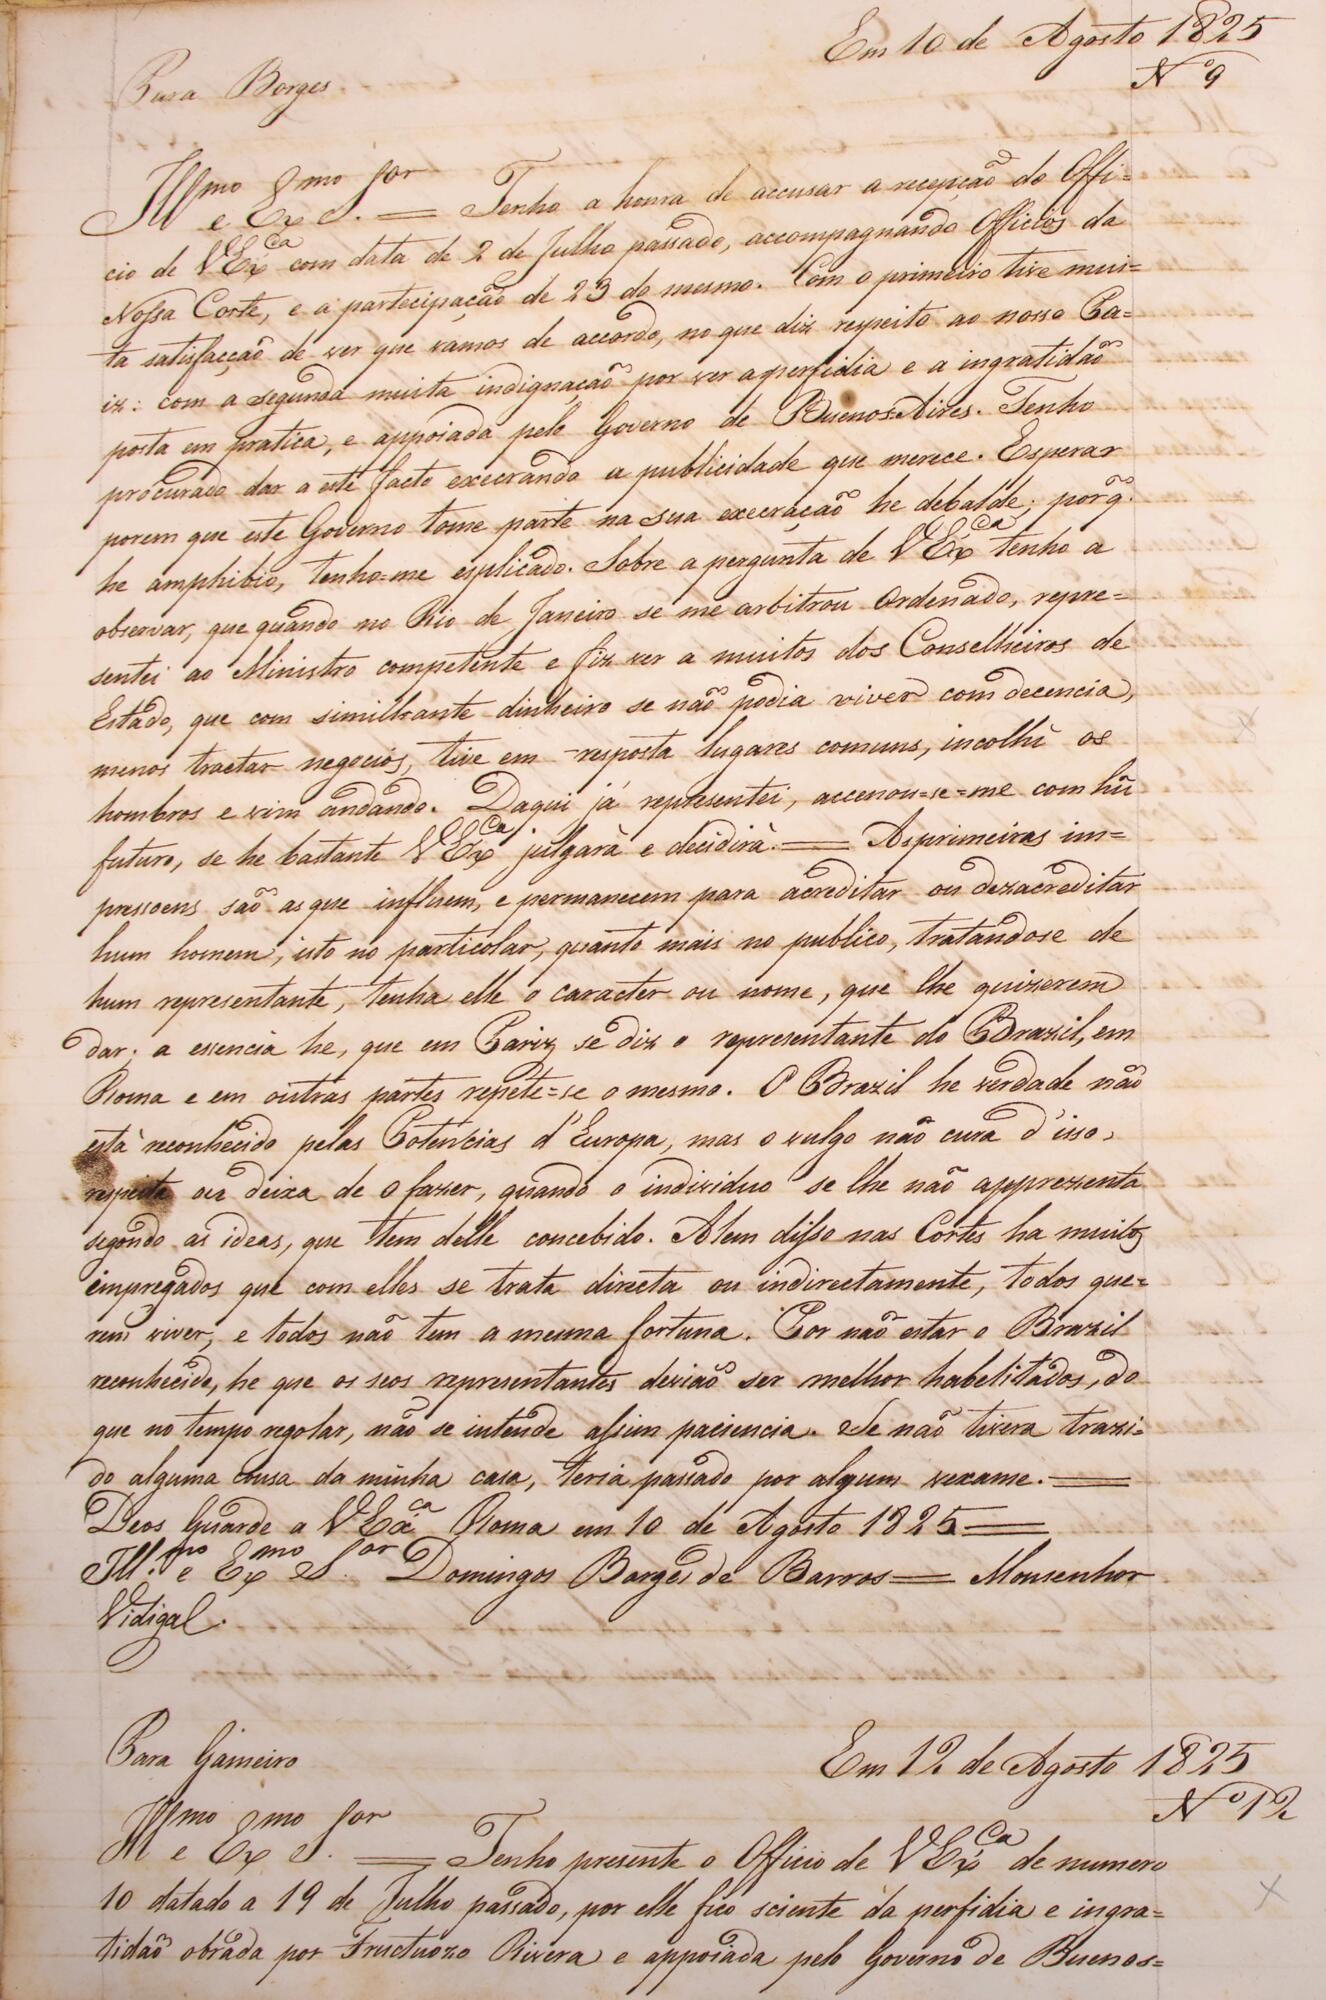 Em 10 de Agosto 1825
Nº 9
Para Borges.
Illmo e Exmo Sor. = Tenho a honra de accusar a recepção do Offi=
cio de VExca com data de 2 de Julho passado, accompagnando Officios da
Nossa Corte, e a partecipação de 23 do mesmo. Com o primeiro tive mui=
ta satisfacção de ver que vamos de accordo, no que diz respeito ao nosso Pa=
iz: com a segunda muita indignação por ver a perfidia e a ingratidão
posta em pratica, e appoiada pelo Governo de Buenos=Aires. Tenho
procurado dar a este facto execrando a publicidade que merece. Esperar
porem que este Governo tome parte na sua execração he debalde; porq̃.
he amphibio, tenho=me esplicado. Sobre a pergunta de VExca tenho a
observar, que quando no Rio de Janeiro se me arbitrou Ordenado, repre=
sentei ao Ministro competente e fiz ver a muitos dos Conselheiros de
Estado, que com similhante dinheiro se não podia viver com decencia,
menos tractar negocios, tive em resposta lugares comuns, incolhi os
hombros e vim andando. Daqui já representei, accenou=se=me com hũ
futuro, se he bastante VExca julgarà e decidirà. = As primeiras im=
pressoens são as que influem, e permanecem para acreditar ou dezacreditar
hum homem, isto no particolar, quanto mais no publico, tratandose de
hum representante, tenha elle o caracter ou nome, que lhe quizerem
dar; a essencia he, que em Pariz se diz o representante do Brazil, em
Roma e em outras partes repete=se o mesmo. O Brazil he verdade não
està reconhecido pelas Potencias d'Europa, mas o vulgo não cura d'isso,
respeita ou deixa de o fazer, quando o individuo se lhe não apprezenta
segondo as ideas, que tem delle concebido. Alem disso nas Cortes ha muitos
empregados que com elles se trata directa ou indirectamente, todos que=
rem viver, e todos não tem a mesma fortuna. Por não estar o Brazil
reconhecido, he que os seos representantes devião ser melhor habelitados, do
que no tempo regolar, não se intende assim paciencia. Se não tivera trazi=
do alguma cousa da minha casa, teria passado por algum vexame. =
Deos Guarde a VExca Roma em 10 de Agosto 1825 =
Ill.mo e Exmo Sor. Domingos Borges de Barros = Monsenhor
Vidigal.
Para Gameiro
Em 12 de Agosto 1825
Nº 12
Illmo e Exmo Sor. = Tenho presente o Officio de VExca de numero
10 datado a 19 de Julho passado, por elle fico sciente da perfidia e ingra=
tidão obrada por Fructuozo Rivera e appoiada pelo Governo de Buenos=